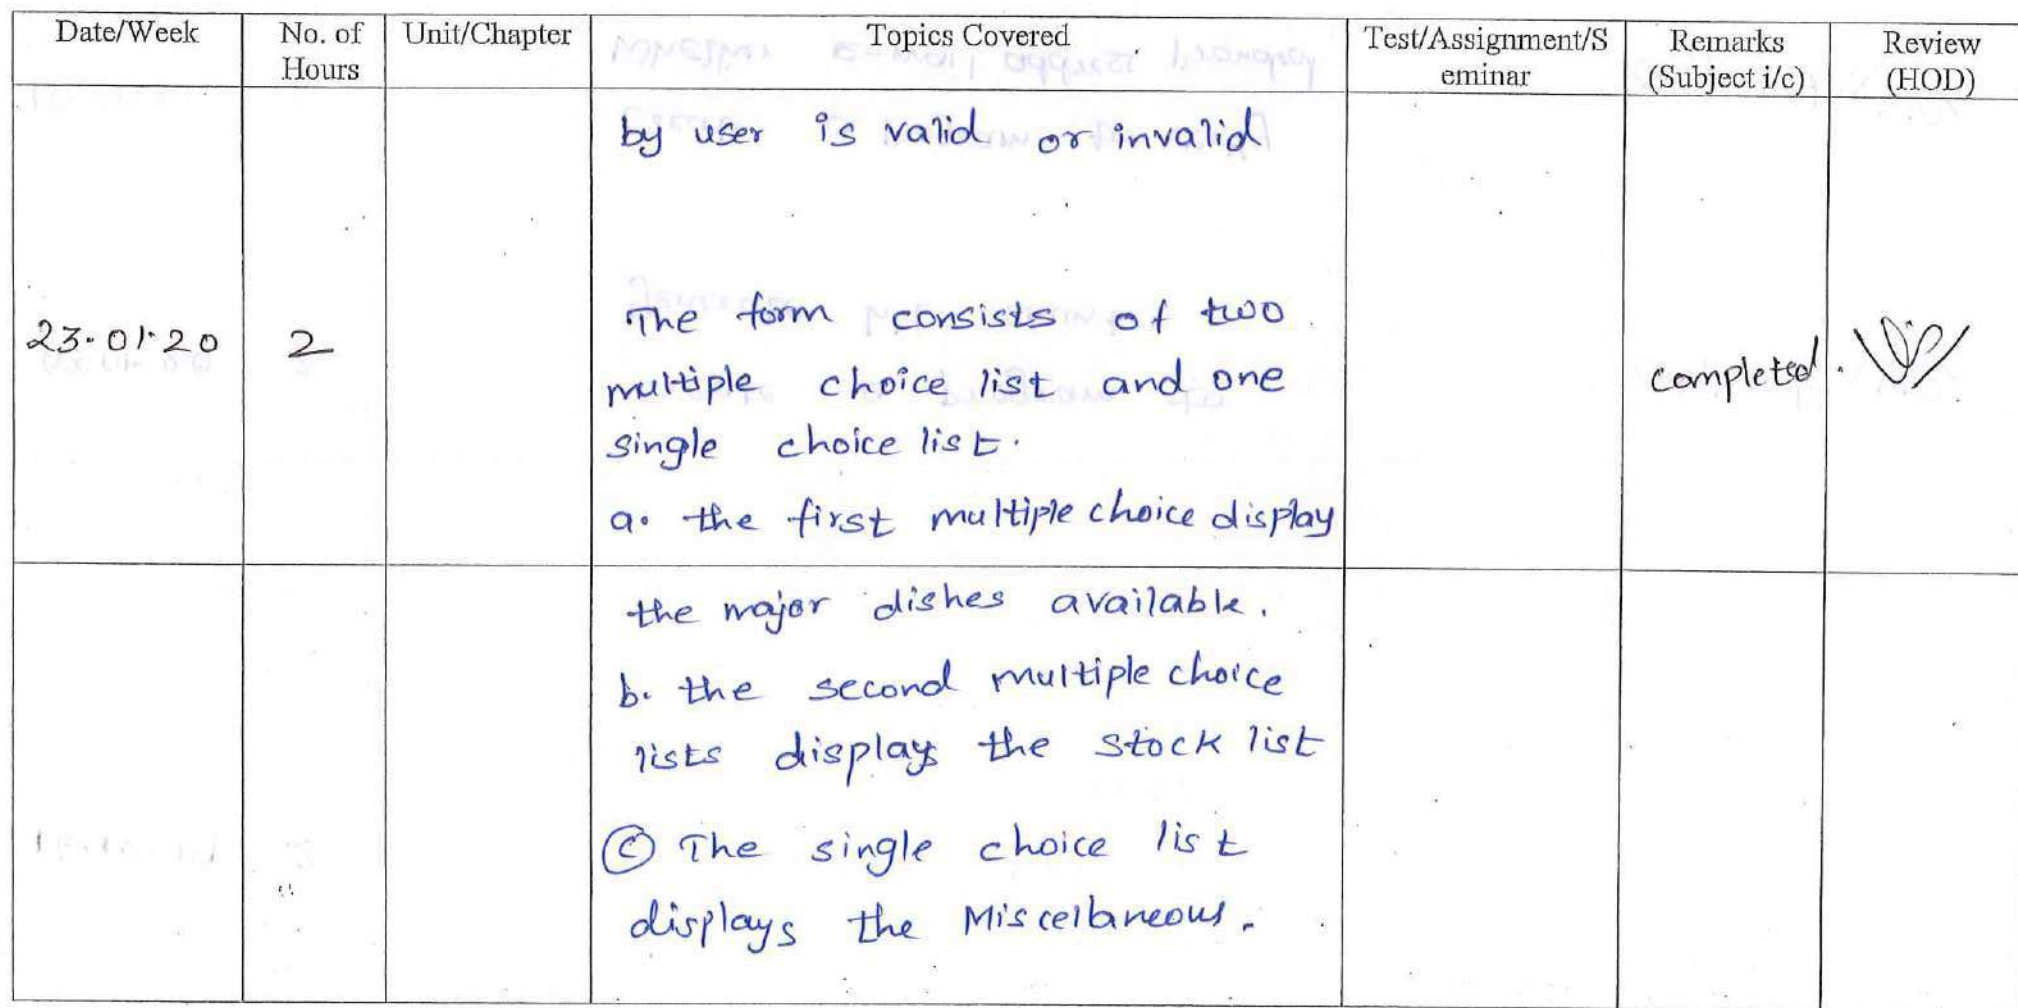 Date/Week No. of Hours Unit/Chapter Topics Covered Test/Assignment/S eminar Remarks (Subject i/c) Review (HOD)
by user is valid or invalid
23.01.20 2 The form consists of two
multiple choice list and one
completed.
single choice list.
a. the first multiple choice display
the major dishes available.
b. the second multiple choice
lists displays the stock list
(c) The single choice list
displays the Miscellaneous.